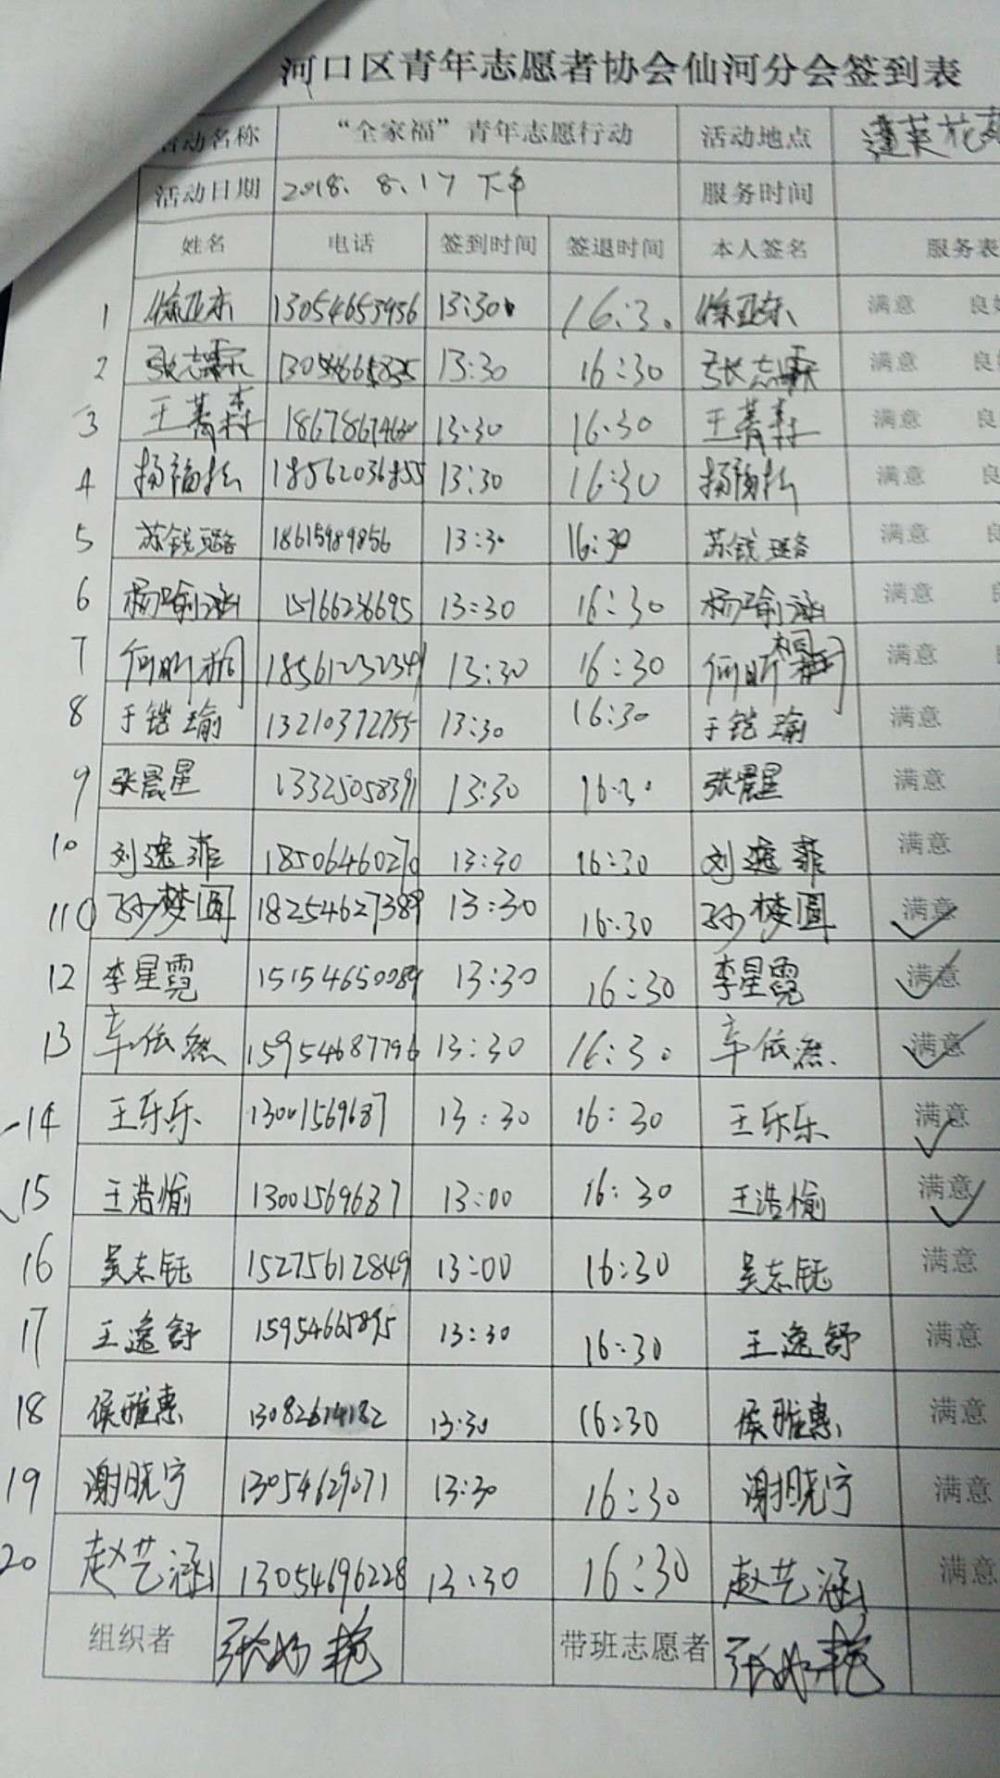 河口区青年志愿者协会仙河分会签到表
活动名称 “全家福”青年志愿行动 活动地点 蓬莱花
活动日期 2018.8.17 下午 服务时间
姓名 电话 签到时间 签退时间 本人签名 服务表
1 徐亚东 13054653456 13:30 16:30 徐亚东 满意 良
2 张志霖 13:30 16:30 张志霖 满意 良
3 王菁森 13:30 16:30 王菁森 满意 良
4 杨福松 18562036855 13:30 16:30 杨福松 满意 良
5 苏锐璐 18615989856 13:30 16:30 苏锐璐 满意
6 杨瑜涵 15166236695 13:30 16:30 杨瑜涵 满意
7 何昕桐 18561232349 13:30 16:30 何昕桐 满意
8 于铠瑜 13210372755 13:30 16:30 于铠瑜 满意
9 张晨星 13325058391 13:30 16:30 张晨星 满意
10 刘逸菲 18506460270 13:30 16:30 刘逸菲 满意
11 孙梦圆 18254627389 13:30 16:30 孙梦圆 满意
12 李星霓 15154650089 13:30 16:30 李星霓 满意
13 辛依然 15954687796 13:30 16:30 辛依然 满意
14 王乐乐 13001569687 13:30 16:30 王乐乐 满意
15 王浩愉 13001569687 13:00 16:30 王浩愉 满意
16 吴志钰 15275612849 13:00 16:30 吴志钰 满意
17 王逸舒 15954665895 13:30 16:30 王逸舒 满意
18 侯雅惠 13082674182 13:30 16:30 侯雅惠 满意
19 谢晓宁 13054629071 13:30 16:30 谢晓宁 满意
20 赵艺涵 13054696228 13:30 16:30 赵艺涵 满意
组织者 张 艳 带班志愿者 张 艳